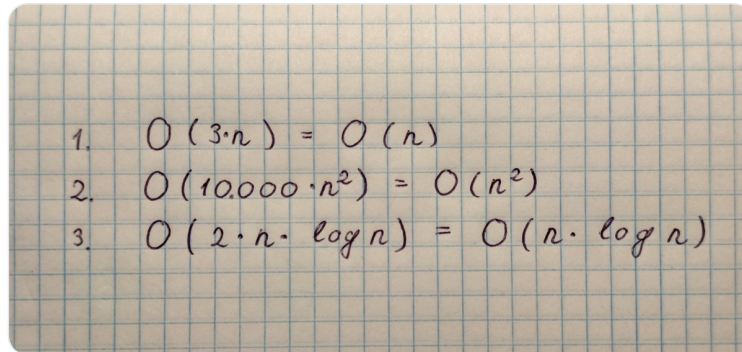 1. O(3·n) = O(n)
2. O(10.000·n²) = O(n²)
3. O(2·n·log n) = O(n·log n)